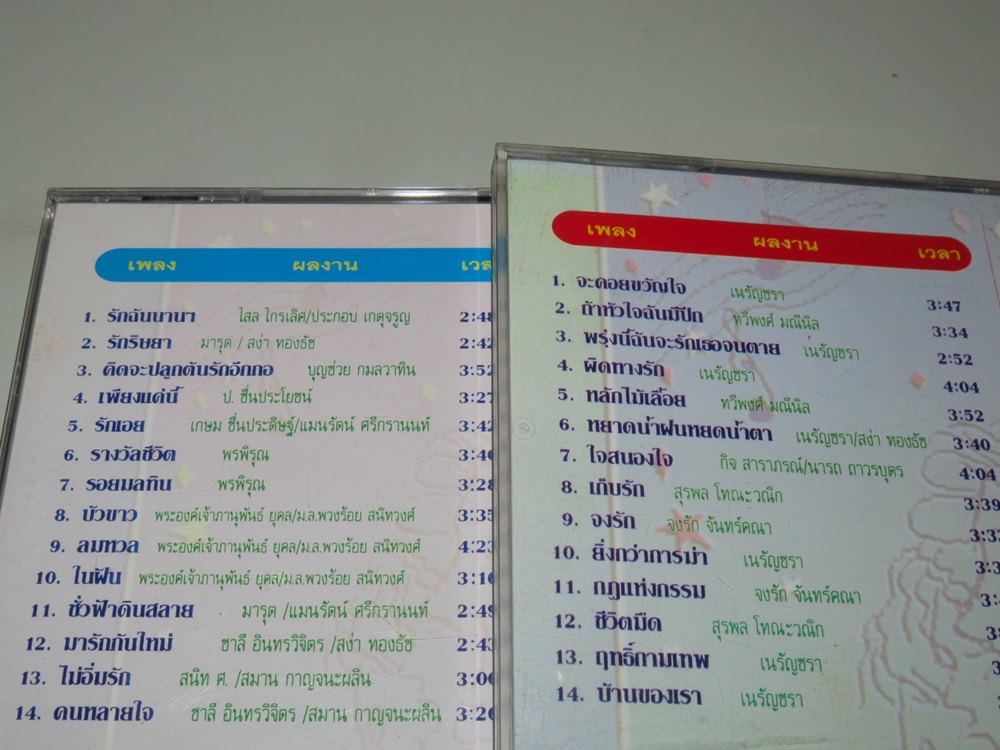 เพลง ผลงาน
1. รักฉันนานๆ ไสล ไกรเลิศ/ประกอบ เกตุจรูญ
2. รักริษยา มารุต / สง่า ทองธัช 2:42
3. คิดจะปลูกต้นรักอีกกอ บุญช่วย กมลวาทิน 3:52
4. เพียงแค่นี้ ป. ชื่นประโยชน์ 3:27
5. รักเอย เกษม ชื่นประดิษฐ์/แมนรัตน์ ศรีกรานนท์ 3:42
6. รางวัลชีวิต พรพิรุณ
7. รอยมลทิน พรพิรุณ 3:28
8. บัวขาว พระองค์เจ้าภานุพันธ์ ยุคล/ม.ล.พวงร้อย สนิทวงศ์ 3:35
9. ลมหวล พระองค์เจ้าภานุพันธ์ ยุคล/ม.ล.พวงร้อย สนิทวงศ์ 4:23
10. ในฝัน พระองค์เจ้าภานุพันธ์ ยุคล/ม.ล.พวงร้อย สนิทวงศ์
11. ชั่วฟ้าดินสลาย มารุต /แมนรัตน์ ศรีกรานนท์ 2:49
12. มารักกันใหม่ ชาลี อินทรวิจิตร /สง่า ทองธัช 2:43
13. ไม่อิ่มรัก สนิท ศ. /สมาน กาญจนะผลิน
14. คนหลายใจ ชาลี อินทรวิจิตร /สมาน กาญจนะผลิน
เพลง ผลงาน เวลา
1. จะคอยขวัญใจ เนรัญชรา 3:47
2. ถ้าหัวใจฉันมีปีก ทวีพงศ์ มณีนิล 3:34
3. พรุ่งนี้ฉันจะรักเธอจนตาย เนรัญชรา 2:52
4. ผิดทางรัก เนรัญชรา 4:04
5. หลักไม้เลื้อย ทวีพงศ์ มณีนิล 3:52
6. หยาดน้ำฝนหยดน้ำตา เนรัญชรา/สง่า ทองธัช 3:40
7. ใจสนองใจ กิจ สาราภรณ์/นารถ ถาวรบุตร 4:04
8. เก็บรัก สุรพล โทณะวณิก 3:39
9. จงรัก จงรัก จันทร์คณา
10. ยิ่งกว่าการม่า เนรัญชรา
11. กฎแห่งกรรม จงรัก จันทร์คณา
12. ชีวิตมืด สุรพล โทณะวณิก
13. ฤทธิ์กามเทพ เนรัญชรา
14. บ้านของเรา เนรัญชรา